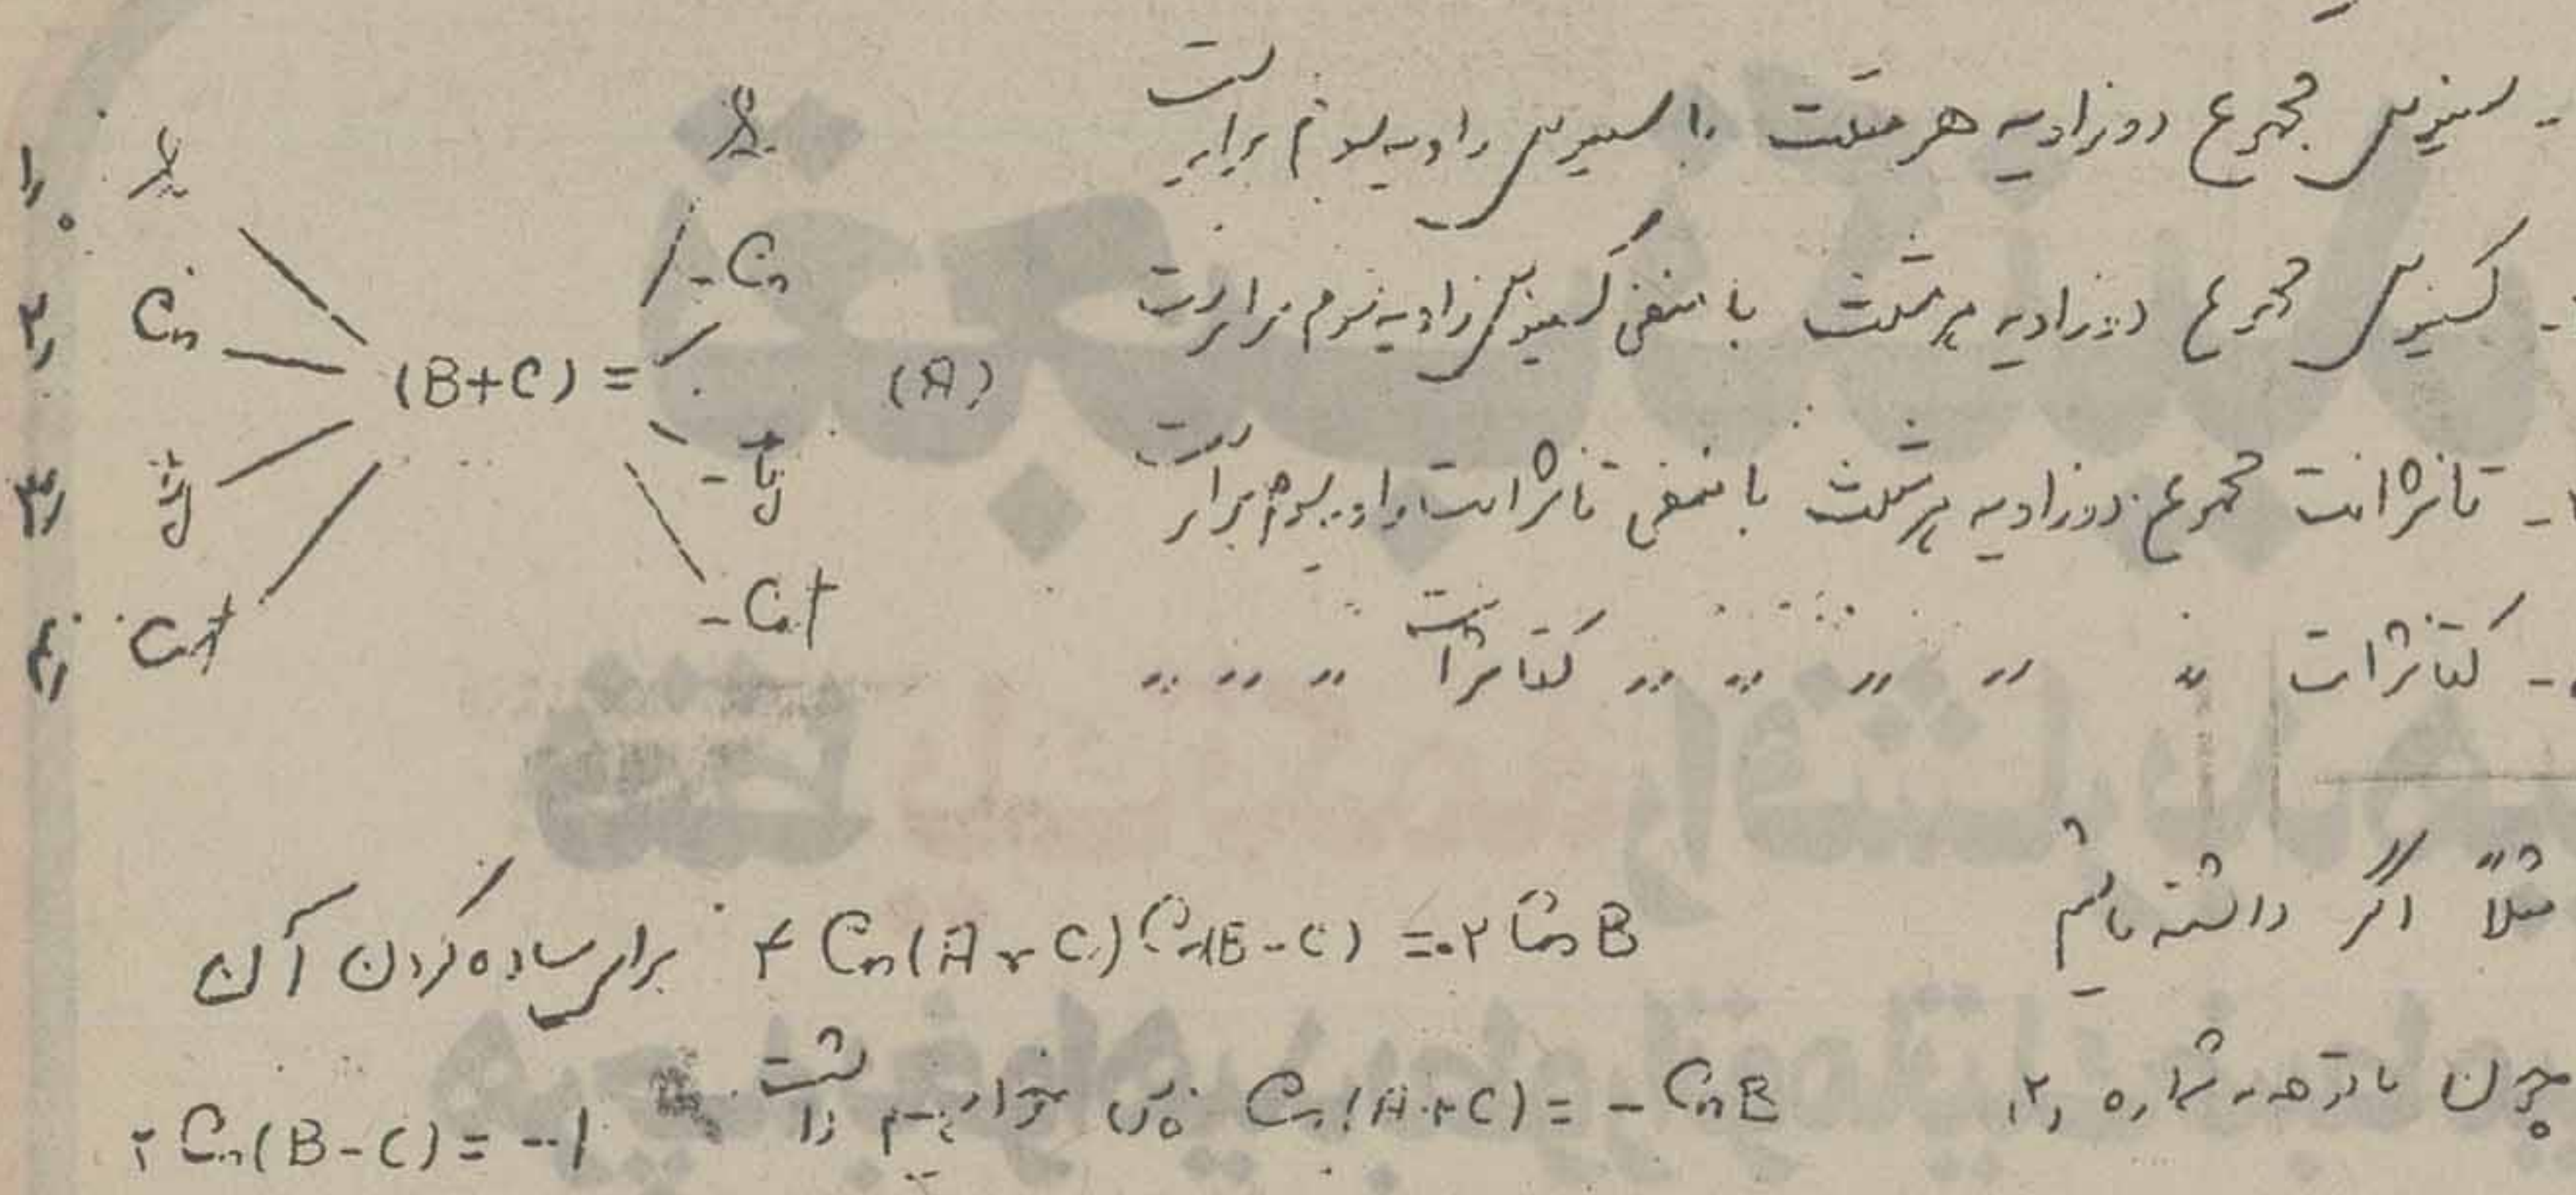 - سینوس مجموع دو زاویه هر مثلث با سینوس زاویه سوم برابر است
- کسینوس مجموع دو زاویه هر مثلث با منفی کسینوس زاویه سوم برابر است
- تانژانت مجموع دو زاویه هر مثلث با منفی تانژانت زاویه سوم برابر است
- کتانژانت " " " " " " کتانژانت " " " "
۱,
۲, Cos (B+C) = - Cos (A)
۳, tg - tg
۴, Cot - Cot
مثلاً اگر داشته باشیم ۴ Cos(A+C) Cos(B-C) = ۲ Cos B برای ساده کردن آن
چون با توجه به شماره ۲, Cos(A+C) = - Cos B پس خواهیم داشت ۲ Cos(B-C) = -1